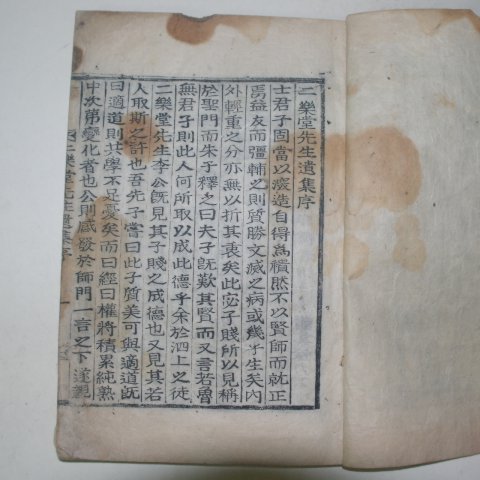 二樂堂先生遺集序
士君子固當以深造自得爲積然不以賢師而就正
焉益友而彊輔之則質勝文滅之病或幾乎生矣內
外輕重之分亦無以折其衷矣此宓子賤所以見稱
於聖門而朱子釋之曰夫子旣歎其賢而又言若魯
無君子則此人何所取以成此德乎余於泗上之徒
二樂堂先生李公旣見其子賤之成德也又見其若
人取斯之許也吾先子嘗曰此子質美可與適道旣
曰適道則其學不足憂矣而曰經曰權將積累純熟
中次第變化者也公則感發於師門一言之下遂親
二樂堂先生遺集序 一